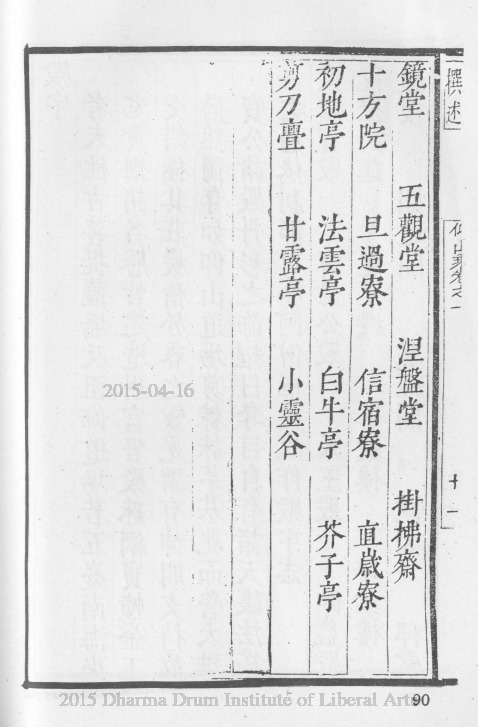 鏡堂 五觀堂 涅盤堂 掛拂齋
十方院 旦過寮 信宿寮 直歲寮
初地亭 法雲亭 白牛亭 芥子亭
剪刀亹 甘露亭 小靈谷
2015-04-16
2015 Dharma Drum Institute of Liberal Arts
90